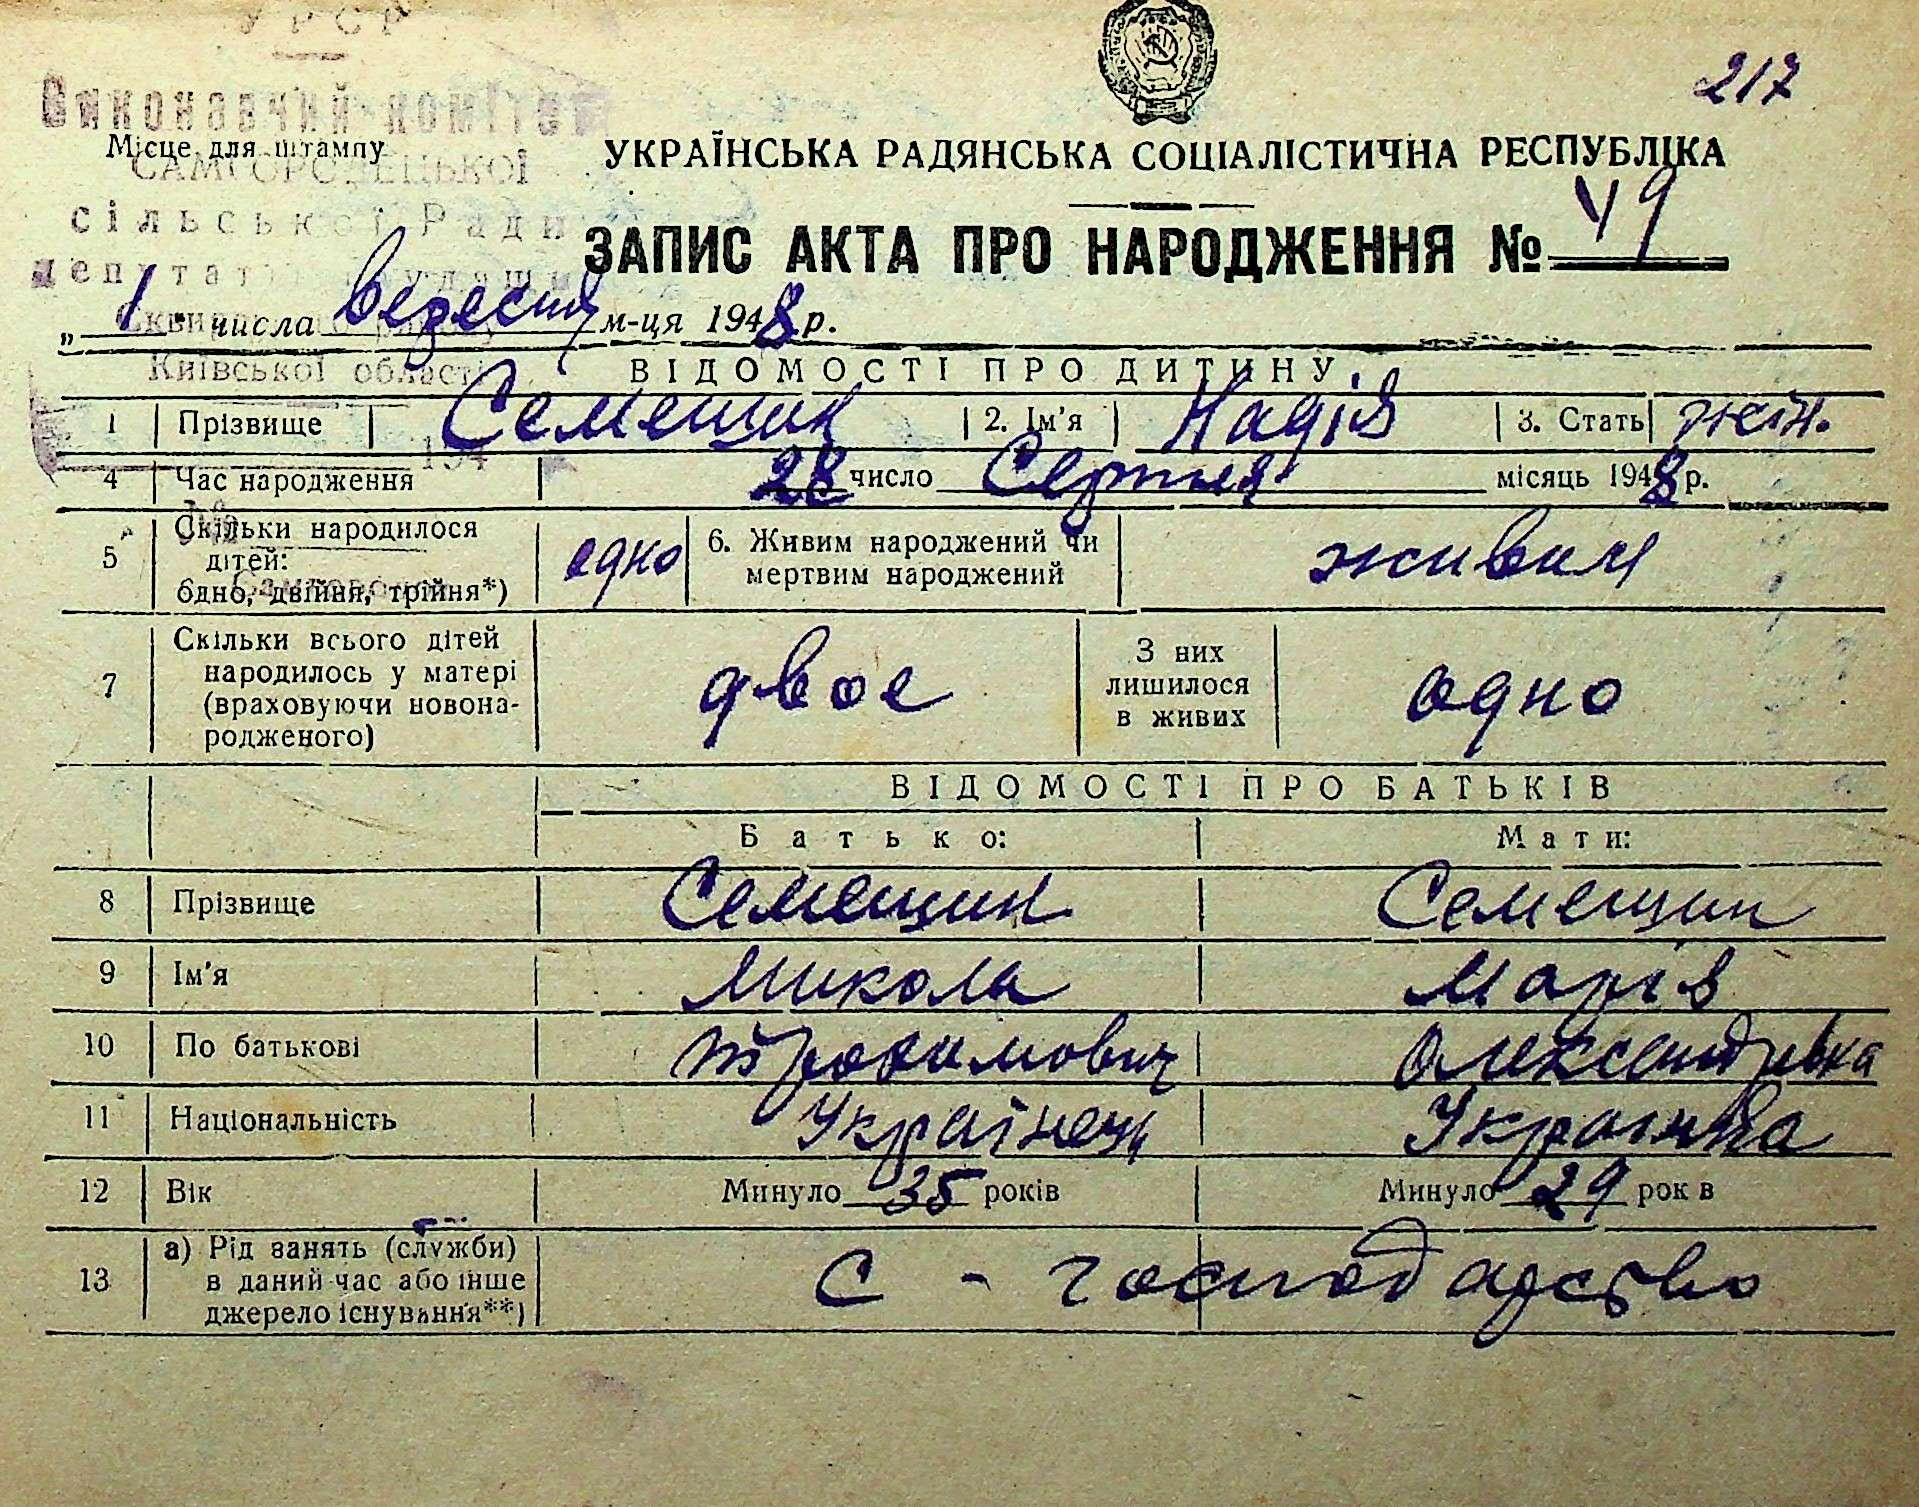 217
Виконавчий комітет
Місце для штампу
САМГОРОДЕЦЬКОЇ
УКРАЇНСЬКА РАДЯНСЬКА СОЦІАЛІСТИЧНА РЕСПУБЛІКА
сільської Ради
ЗАПИС АКТА ПРО НАРОДЖЕННЯ № 49
„ 1 " числа вересня м-ця 1948 р.
Київської області
ВІДОМОСТІ ПРО ДИТИНУ
1 Прізвище Семещук 2. Ім'я Надія 3. Стать жін.
194
4 Час народження 28 число Серпня місяць 1948 р.
5 Скільки народилося дітей: одно, двійня, трійня*) одно 6. Живим народжений чи мертвим народжений живим
7 Скільки всього дітей народилось у матері (враховуючи новонародженого) двое З них лишилося в живих одно
ВІДОМОСТІ ПРО БАТЬКІВ
Батько: Мати:
8 Прізвище Семещук Семещук
9 Ім'я Микола Марія
10 По батькові Трохимович Олександрівка
11 Національність Українець Українка
12 Вік Минуло 35 років Минуло 29 рок в
13 а) Рід занять (служби) в даний час або інше джерело існування**) С - господарство